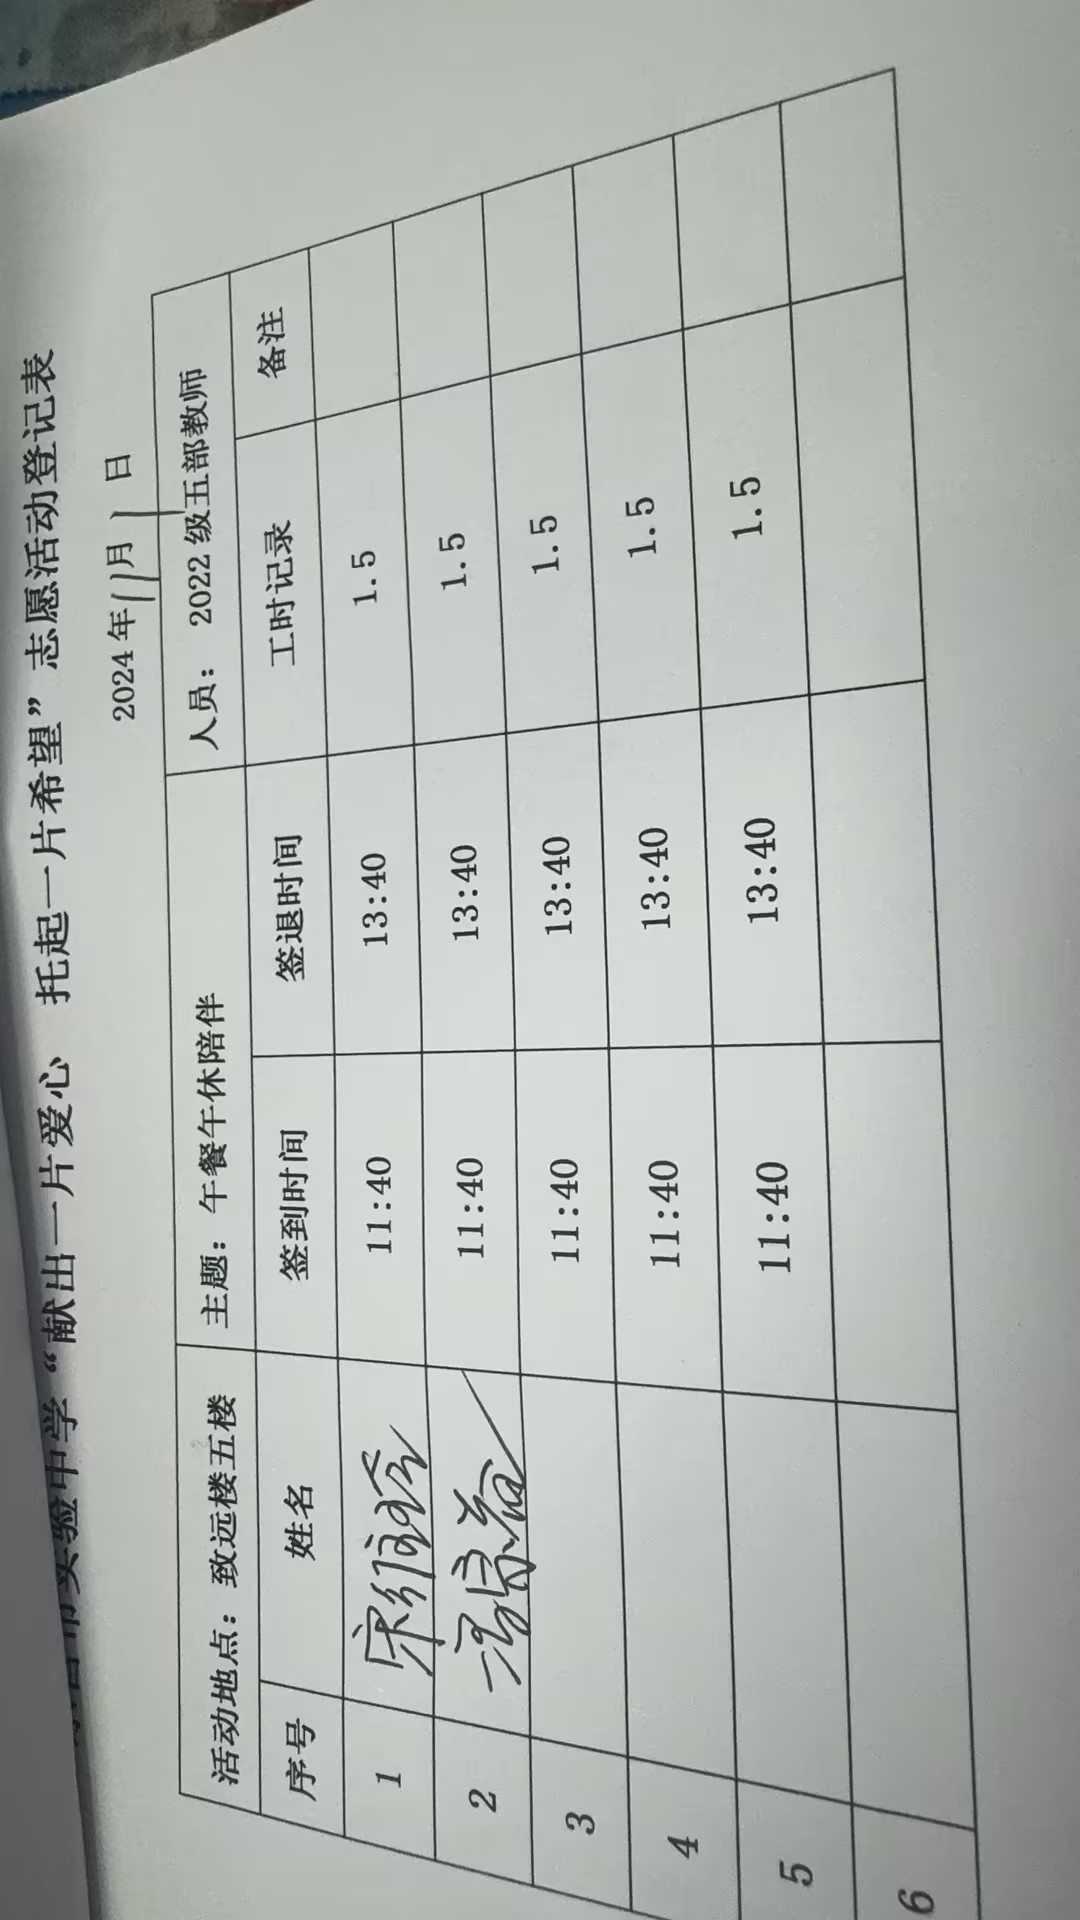 市实验中学“献出一片爱心 托起一片希望”志愿活动登记表
2024年11月1日
活动地点：致远楼五楼 主题：午餐午休陪伴 人员： 2022级五部教师
序号 姓名 签到时间 签退时间 工时记录 备注
1 11:40 13:40 1.5
2 11:40 13:40 1.5
3 11:40 13:40 1.5
4 11:40 13:40 1.5
5 11:40 13:40 1.5
6